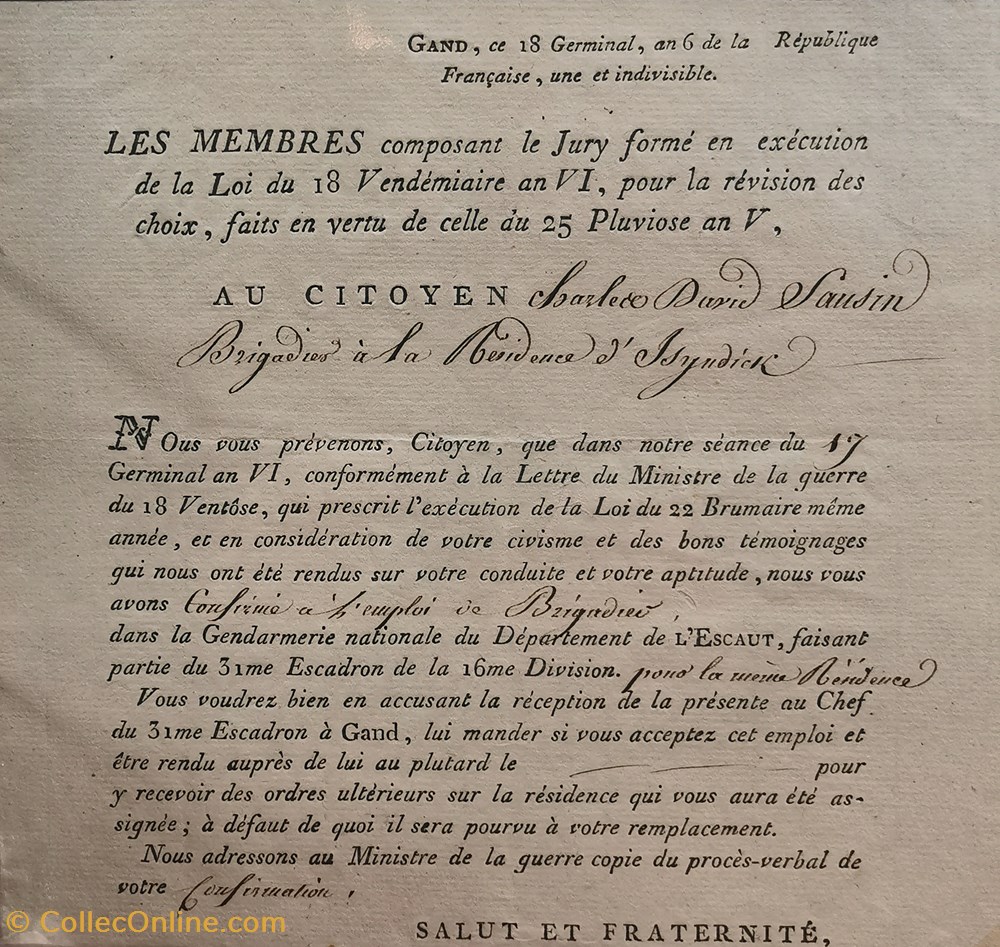 GAND, ce 18 Germinal, an 6 de la République
Française, une et indivisible.
LES MEMBRES composant le Jury formé en exécution
de la Loi du 18 Vendémiaire an VI, pour la révision des
choix, faits en vertu de celle du 25 Pluviose an V,
AU CITOYEN Charles David Sausin
Brigadier à la Résidence d'Isyndick
NOus vous prévenons, Citoyen, que dans notre séance du 17
Germinal an VI, conformément à la Lettre du Ministre de la guerre
du 18 Ventôse, qui prescrit l'exécution de la Loi du 22 Brumaire même
année, et en considération de votre civisme et des bons témoignages
qui nous ont été rendus sur votre conduite et votre aptitude, nous vous
avons Confirmé à l'emploi de Brigadier,
dans la Gendarmerie nationale du Département de L'ESCAUT, faisant
partie du 31me Escadron de la 16me Division. pour la même Résidence
Vous voudrez bien en accusant la réception de la présente au Chef
du 31me Escadron à Gand, lui mander si vous acceptez cet emploi et
être rendu auprès de lui au plutard le pour
y recevoir des ordres ultérieurs sur la résidence qui vous aura été as-
signée ; à défaut de quoi il sera pourvu à votre remplacement.
Nous adressons au Ministre de la guerre copie du procès-verbal de
votre Confirmation,
SALUT ET FRATERNITÉ,
© CollecOnline.com